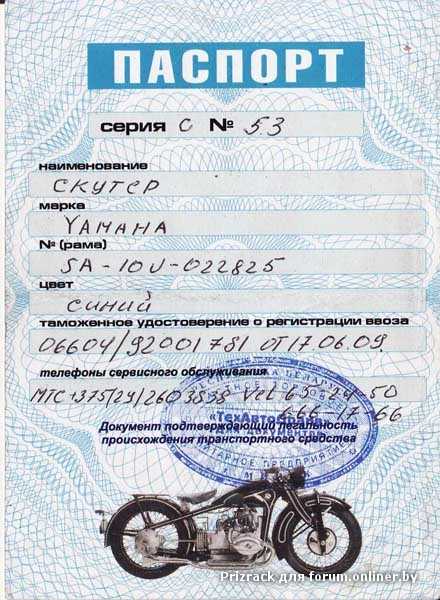 ПАСПОРТ
серия С № 53
наименование
СКУТЕР
марка
YAMAHA
№ (рама)
SA-10J-022825
цвет
СИНИЙ
таможенное удостоверение о регистрации ввоза
06604/92001781 ОТ 17.06.09
телефоны сервисного обслуживания
МТС 1375/29/2603838 Vel 63-29-50
666-17-66
"ТехАвто
для документов
Документ подтверждающий легальность
происхождения транспортного средства
Prizrack для forum.onliner.by